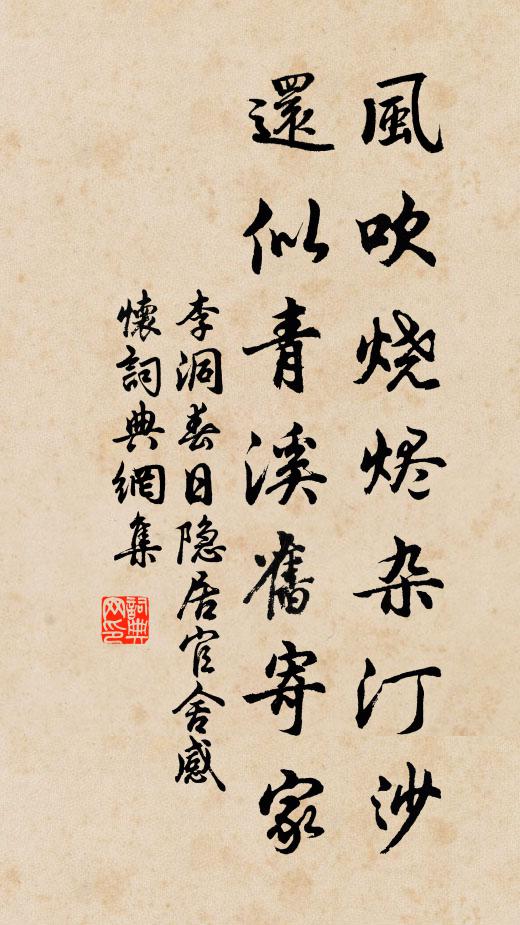 風吹烧烬杂汀沙
還似青溪舊寄家
李洞春日隐居官舍感
懷詞典網集
詞典
网印